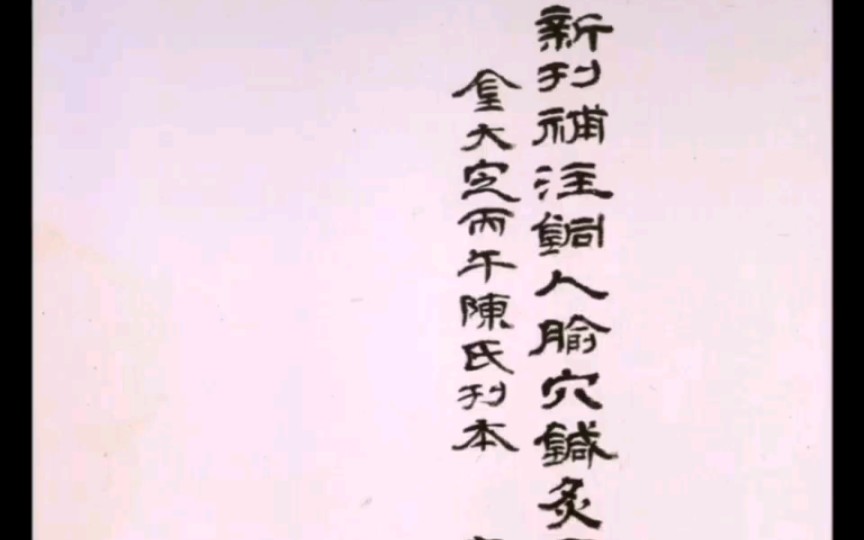 新刊補注銅人腧穴鍼灸
金大定丙午陳氏刊本